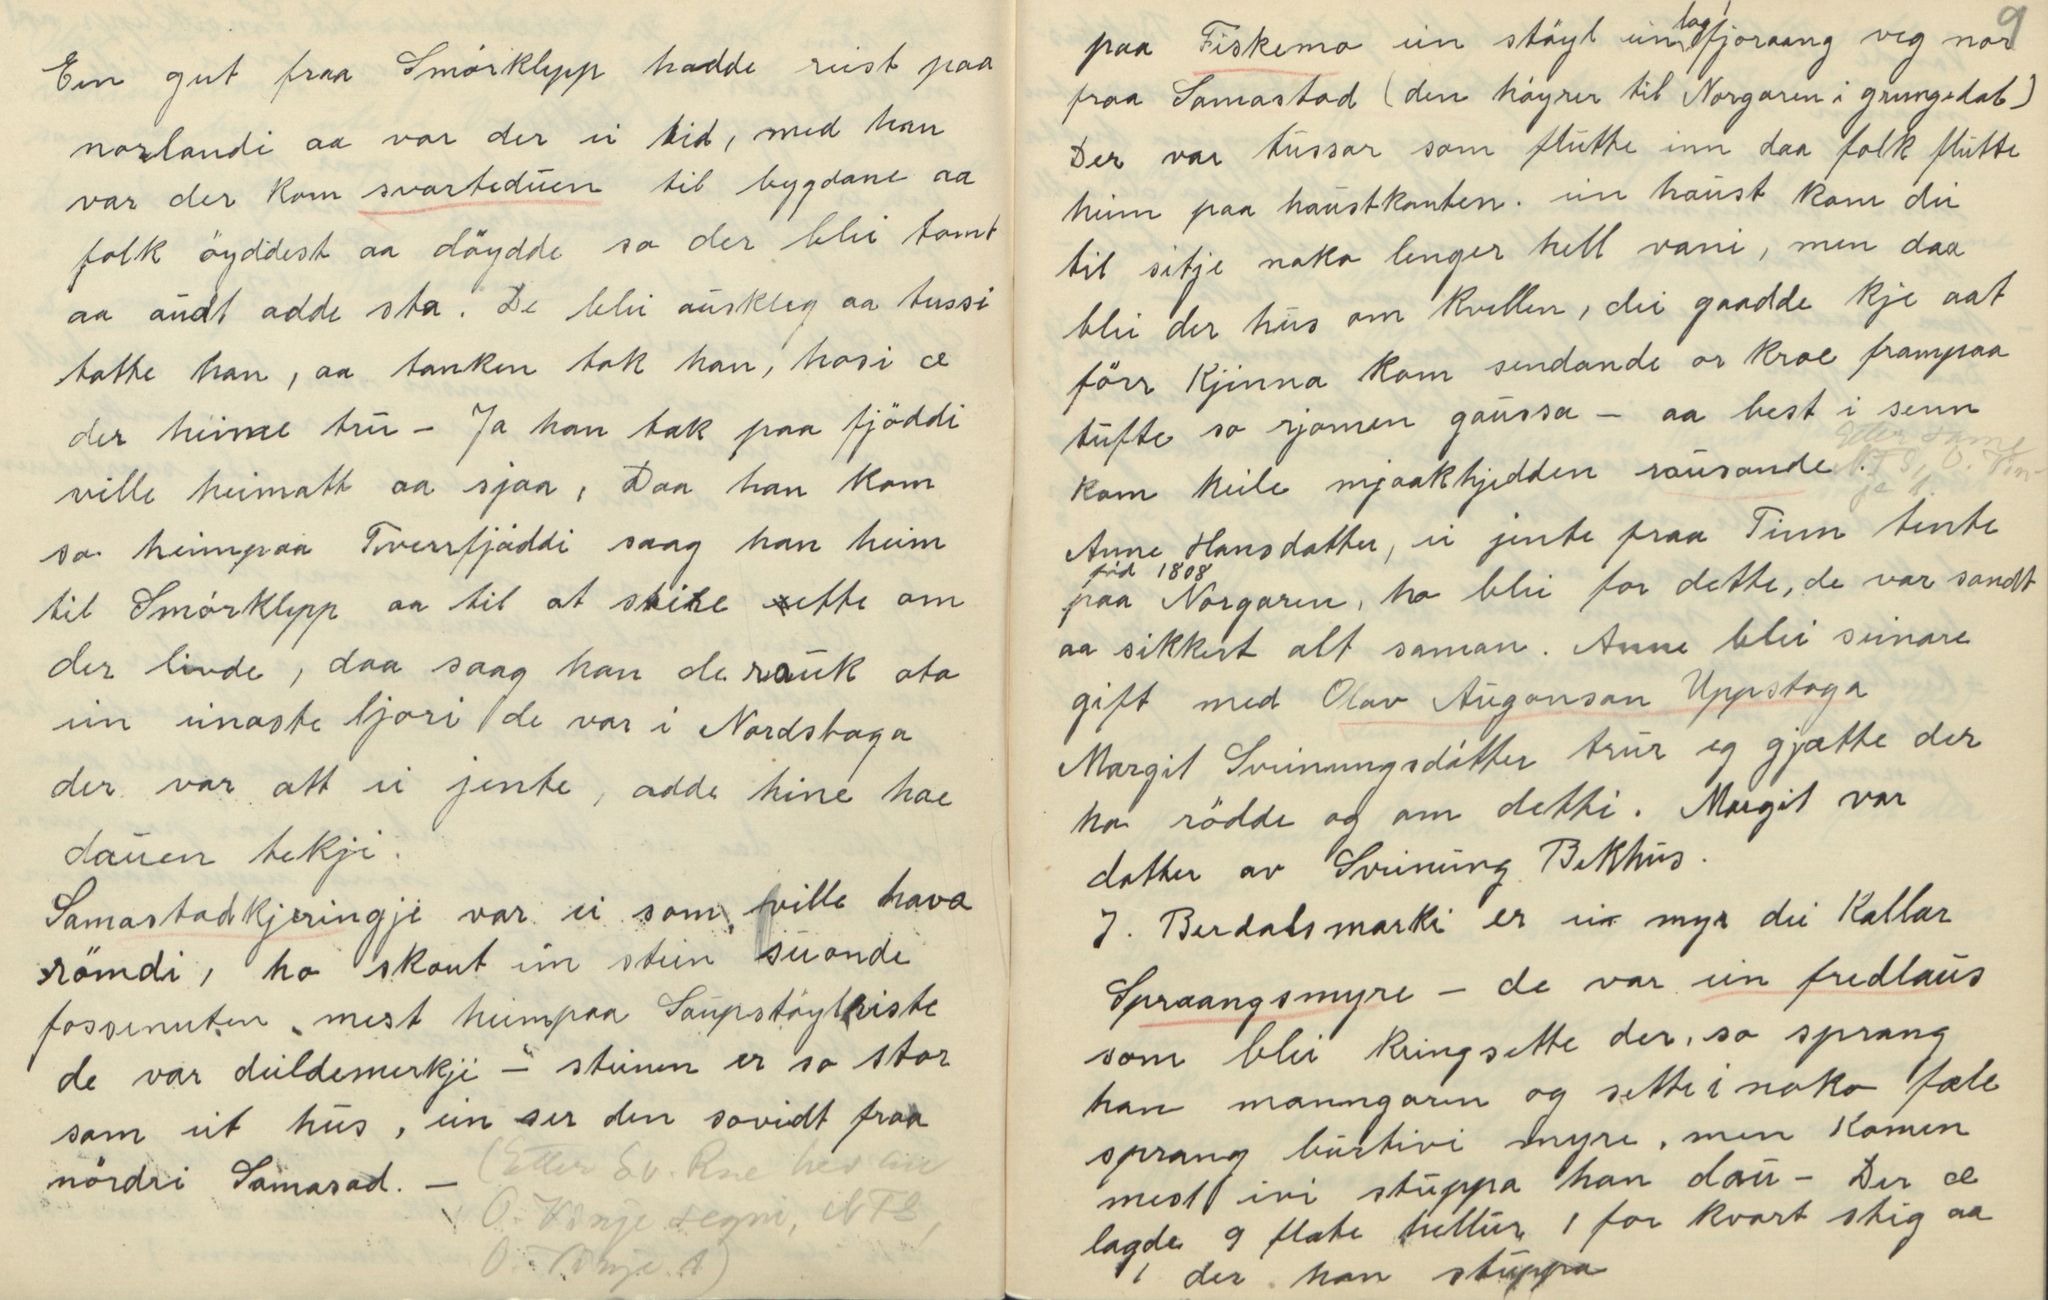 Ein gut fraa Smörklepp hadde reist paa
norlandi aa var der ei tid, med han
var der kom svartedüen til bygdane aa
folk öyddest aa döydde so der blei tomt
aa audt adde sta. De blei aüskleg aa tussi
totte han, aa tanken tok han, hosi æ
der heime trü - Ja han tok paa fjöddi
ville heimatt aa sjaa, Daa han kom
so heimpaa Tverrfjöddi saag han heim
til Smörklepp aa til at stive sette om
der livde, daa saag han de raük ota
ein einaste ljori de var i Nordstoga
der var att ei jente, adde hine hae
daüen tekji.
Samastadkjeringje var ei som ville hava
römdi, ho skaut ein stein süonde
fossenuten, mest heimpaa Saupstöylriste
de var deildemerkji - steinen er so stor
som eit hüs, ein ser den sovidt fraa
nördri Samasad. -
(Etter Sv. Rue hev
O. Vinje segni, NFS,
O. Vinje 1)
9
paa Fiskemo ein stöyl ein log fjoraang veg nor
fraa Samastad (den höyrer til Norgaren i grungedal)
Der var tüssar som flütte inn daa folk flütte
heim paa haüstkanten. ein haüst kom dei
til sitje noko lenger hell vani, men daa
blei der hüs om kvellen, dei gaadde kje aat
förr Kjinna kom sendande or kroe frampaa
tüfte so rjomen gaüssa - aa best i senn
kom heile mjaakhjedden raüsande.
Etter same
NFS, O. Vin-
je 1.
Anne Hansdatter, ei jente fraa Tinn tente
föd 1808
paa Norgaren, ho blei for dette, de var sandt
aa sikkert alt saman. Anne blei seinare
gift med Olav Aügonson Uppstoga
Margit Sveinungsdötter trür eg gjætte der
ho rödde og om detti. Margit var
dotter av Sveinüng Bekhüs.
J. Berdalsmarki er ei myr dei Kallar
Spraangsmyre - de var ein fredlaüs
som blei kringsette der, so sprang
han manngaren og sette i noko fæle
sprang bürtivi myre, men komen
mest ivi stüppa han daü - Der æ
lagde 9 flate hellür, 1 for kvart stig aa
1 der han stüppa